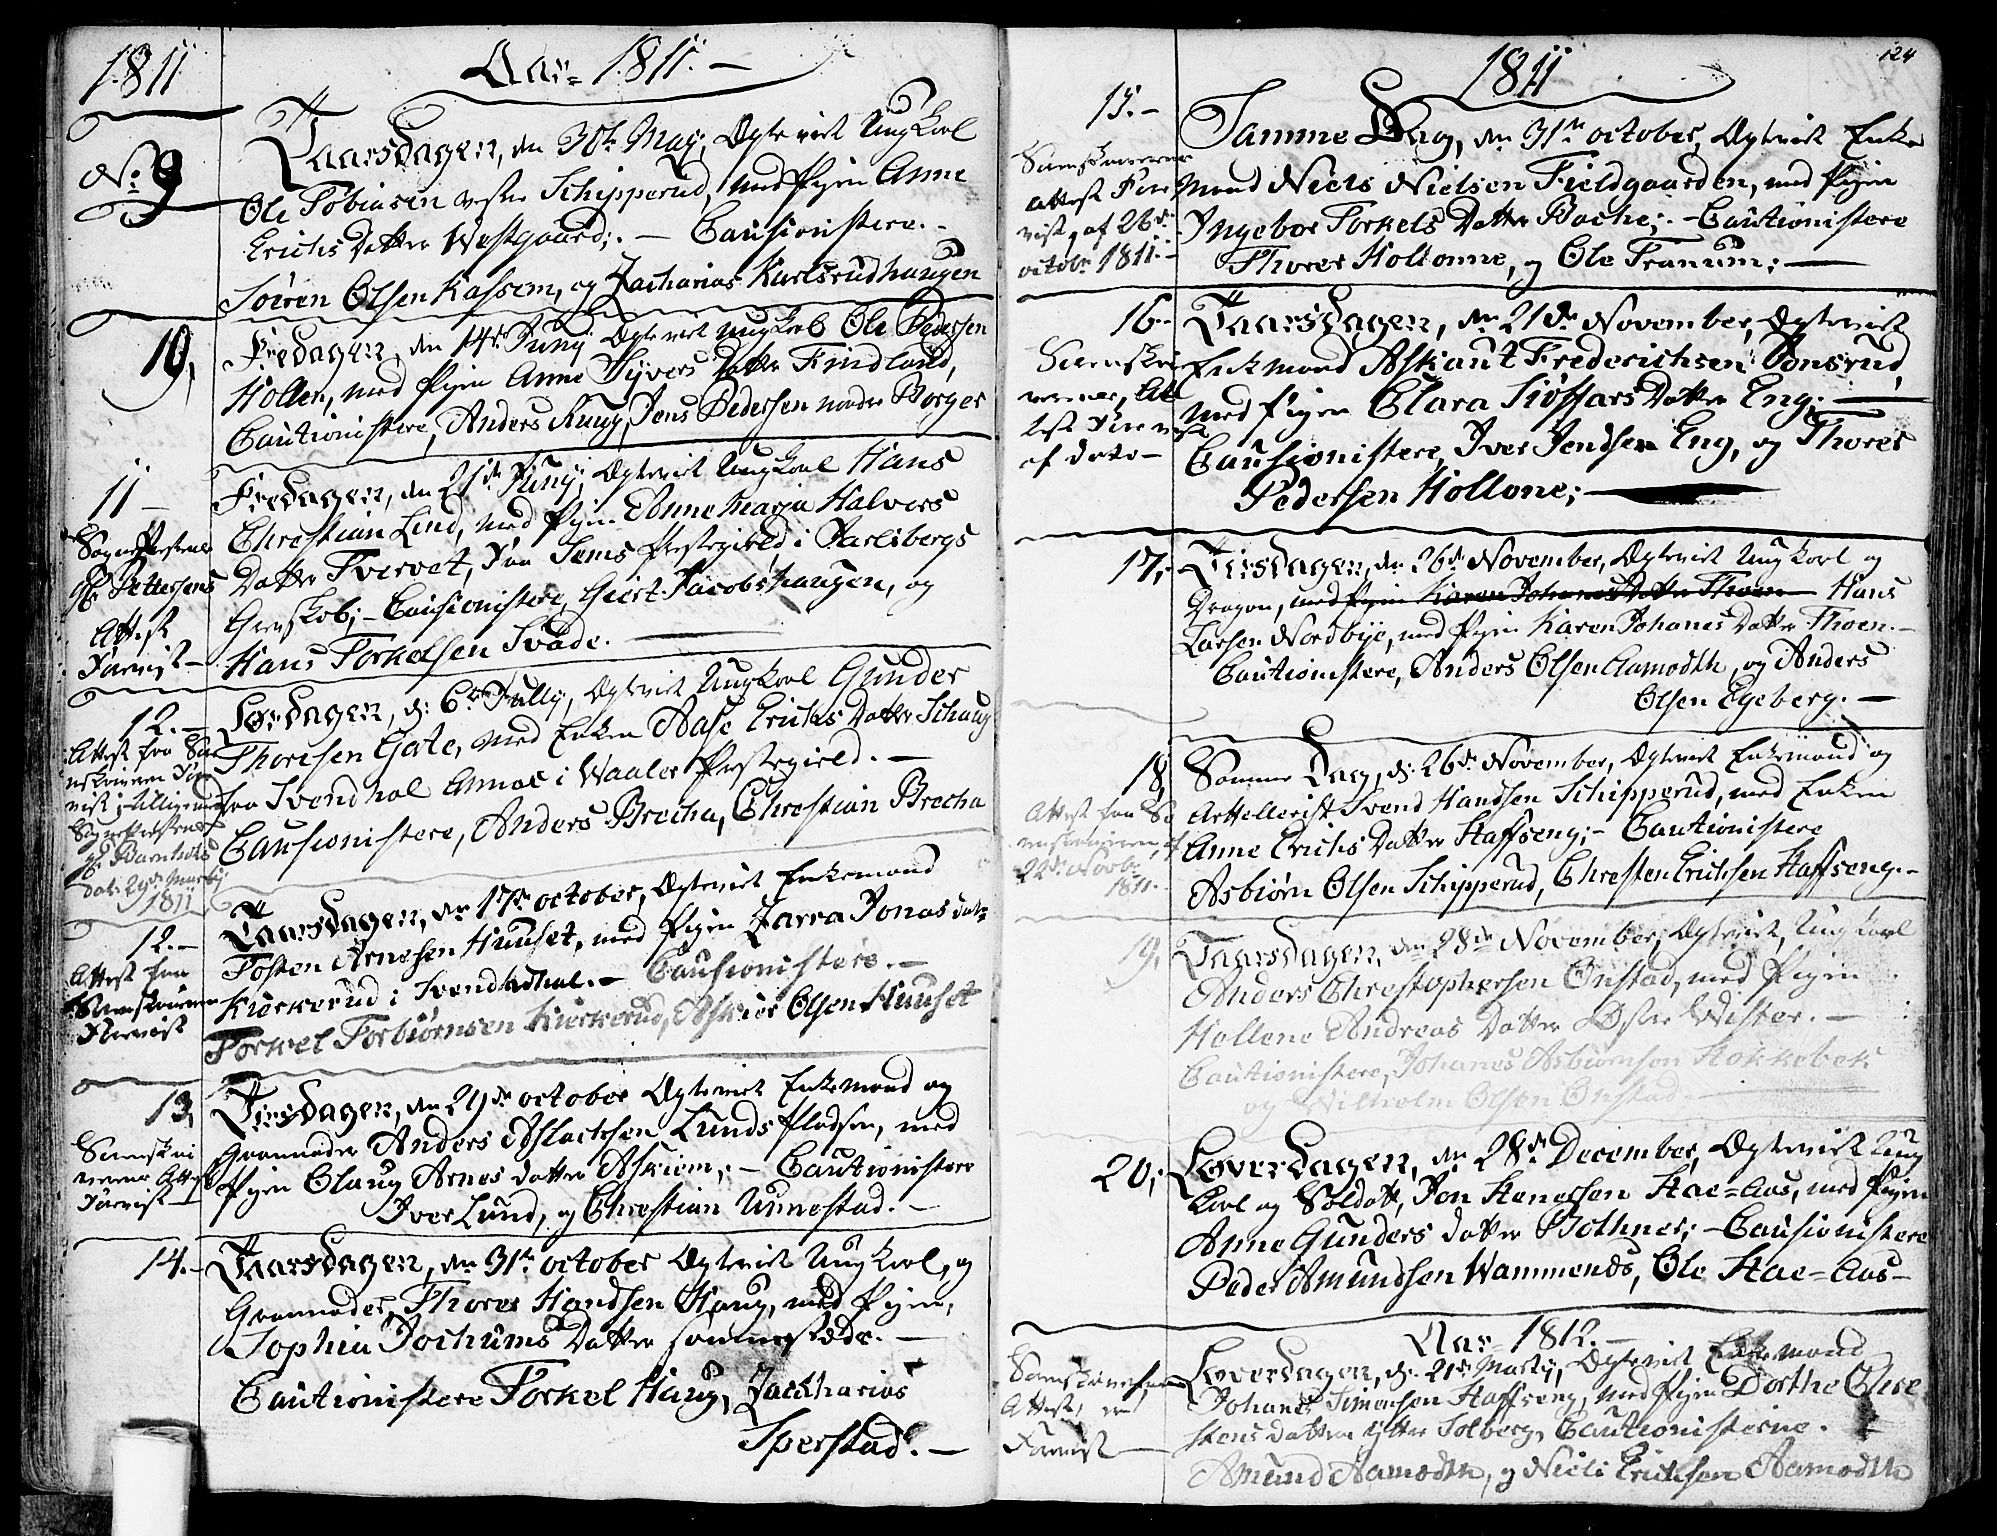 1811
Aar 1811. —
No 9
Taarsdagen, den 30te Maÿ, Ægteviet Ungkarl
Ole Tobiasen vestre Schipperud, med Pigen Anne
Erichs Datter Westgaard; — Causionistere. —
Søren Olsen Kassem, og Zacharias Karlsrudhaugen
10,
Fredagen, den 14de Junÿ Ægteviet Ungkarl Ole Pedersen
Holler, med Pigen Anne Syvers Datter Findland,
Cautionistere, Anders Ruug, Jens Pedersen nordre Borger
11 —
Sogne Præstens
Hr Pettersens
Attest
Førevist —
Fredagen, den 21de Junÿ, Ægteviet Ungkarl Hans
Chrestian Lind, med Pigen Anne Maria Halvors
Datter Tvervet, fra Sems Præstegield i Jarlsbergs
Grevskob; — Causionistere, Giert Jacobshaugen, og
Hans Torkelsen Svade. —
12. —
Attest fra So
renskriveren Fore
vist; tilligemed
Sognepræstens
Hr Barnholts
dat: 29de Martÿ
1811
Løverdagen, d: 6te Jullÿ, Ægteviet Ungkarl Gunder
Thoresen Gate, med Enken Aase Erichs Datter Schaug
fra Svendhol Annex i Waaler Præstegield. —
Causionistere, Anders Brecha, Chrestian Brecha
12. —
Attest fra
Sorenskriveren
Førevist
Taarsdagen, den 17de october, Ægteviet Enkemand
Tosten Arnesen Huuset, med Pigen Zarra Jonas dat:
Kirkerud i Svendhal. — Causionistere. —
Torkel Torbiørnsen Kirkerud, Asker Olsen Huuset
13,
Sorenskri
verens Attest
Førevist —
Tirsdagen, den 29de october Ægteviet Enkemand og
Grannader Anders Aslachsen Lunds Pladsen, med
Pigen Olaug Arnes datter Askiem; — Cautionistere
Iver Lund, og Chrestian Unnestad. —
14. —
Taarsdagen, den 31te october Ægteviet Ungkarl, og
Grannader, Thores Handsen Haug, med Pigen,
Sophia Jochums Datter sammestæds. —
Cautionistere Torkel Haug, Zachharias
Sperstad. —
124
1811
15. —
Sorenskriverens
Attest Fore
vist, af 26de
octobr 1811. —
Samme Dag, den 31te october, Ægteviet Enke
Mand Niels Nielsen Fieldgaarden, med Pigen
Ingebor Torkels Datter Bache; — Cautionistere
Thores Hollonne, og Ole Tranum; —
16 —
Sorenskri
verens, At
test Førevist
af dato —
Taarsdagen, den 21de November, Ægteviet
Enkemand Askaut Frederichsen Tonsrud,
med Pigen Clara Siøffars Datter Eng; —
Causionistere, Iver Jendsen Eng, og Thores
Pedersen Hollone; —
17;
Tirsdagen, den 26de November, Ægteviet Ungkarl og
Dragon, med Pigen Karen Johanes Datter Thoen — Hans
Larsen Nordbye, med Pigen Karen Johanes Datter Thoen. —
Cautionistere, Anders Olsen Aamodth, og Anders
Olsen Egeberg. —
18,
Attest fra So
renskriveren, af
22de Novbr
1811. —
Samme Dag, d: 26de November, Ægteviet Enkemand og
Artellerist Svend Handsen Schipperud, med Enken
Anne Erichs Datter Haffseng; — Cautionistere
Asbiørn Olsen Schipperud, Chresten Erichsen Haffseng. —
19,
Taarsdagen, den 28de November, Ægteviet, Ungkarl
Anders Chrestophersen Onstad, med Pigen
Hellene Andreas Datter Østre Wister. —
Cautionistere, Johanes Asbiørnsen Stokkebek
og Wilhelm Olsen Onstad. —
20;
Løverdagen, den 28de December, Ægteviet Ung
karl og Soldat, Jon Stenersen Hae=Aas, med Pigen
Anne Gunders datter Bothner; — Causionistere
Peder Amundsen Wammends, Ole Hae=Aas —
Aar 1812. —
Sorenskriverens
Attest, er
Førevist —
Løverdagen, d: 21de Martÿ, Ægteviet Enkemand
Johanes Simensen Haffseng, med Pigen Dorthe Chre
stens datter ytter Solberg, Cautionisterne.
Amund Aamodth, og Niels Erichsen Aamodth